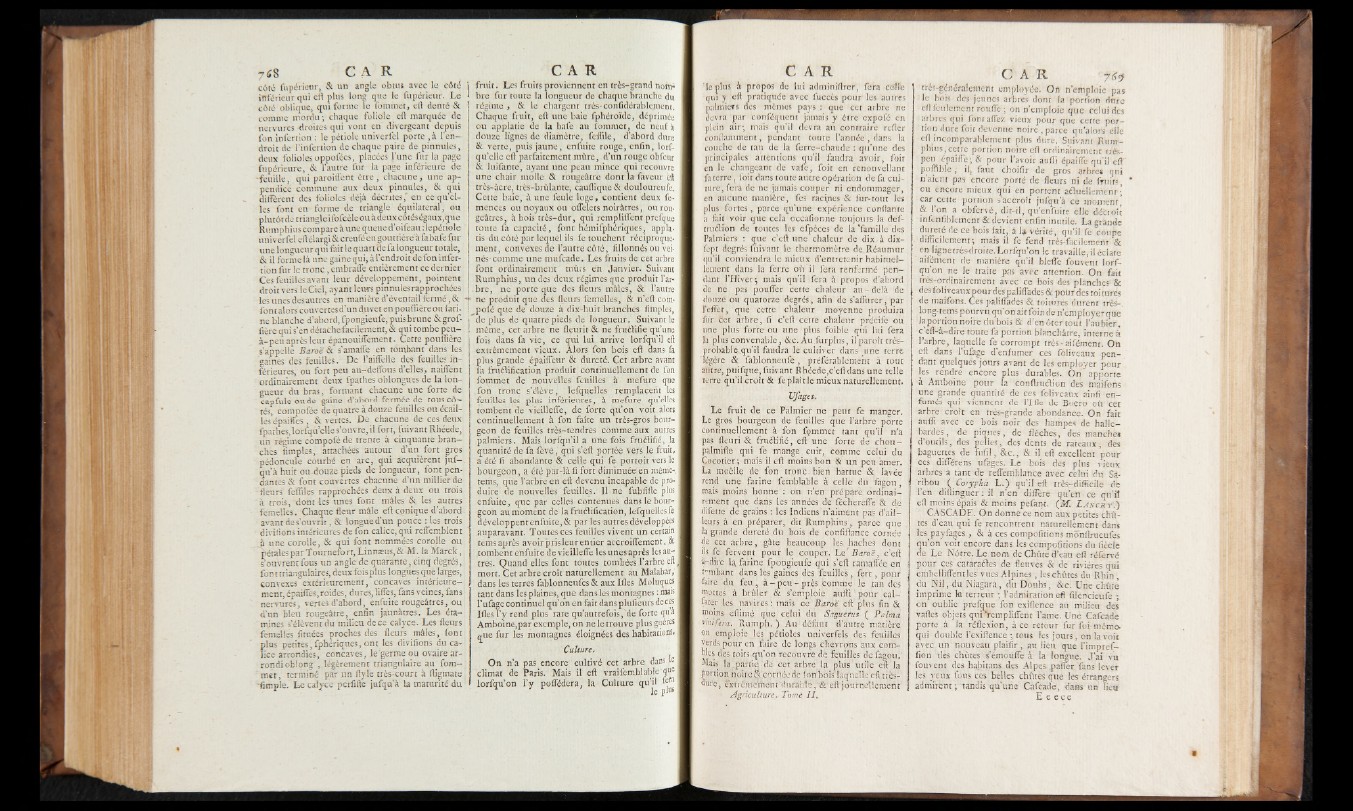 768 C A R
côté supérieur, & un angle obtus avec le côté
inférieur qui est plus long que le supérieur. Le
côté oblique, qui forme le sommet, est denté &
comme mordu; chaque foliole est marquée de
nervures droites qui vont en divergeant depuis
son insertion: le pétiole universel porte, à l'en-
droit de l'insertion de chaque paire de pinnules,
deux folioles opposées, placées l'une sur la page
supérieure, & l'autre sur la page inférieure de
feuille, qui paroissent être, chacune, une ap-
pendice commune aux deux pinnules, & qui
diffèrent des folioles déjà décrites, en ce qu'el-
les sont en forme de triangle équilatéral, ou
plutôt de triangle isoscèle ou à deux côtés égaux, que
Rumphius compare à une queue d'oiseau: le pétiole
universel est élargi & creusé en gouttière à sa base sur
une longueur qui fait le quart de la longueur totale,
& il forme là une gaine qui, à l'endroit de son inser-
tion sur le tronc, embrasse entièrement ce dernier
Ces feuilles avant leur développement, pointent
droit vers le Ciel, ayant leurs pinnules rapprochées
les unes des autres en manière d'éventail fermé, &
sont alors couvertes d'un duvet en poussière ou fari-
ne blanche d'abord, spongieuse, puis brune & gros-
sière qui s'en détache facilement, & qui tombe peu-
à-peu après leur épanouissement. Cette poussière
s'appelle Baroë & s'amasse en tombant dans les
gaines des feuilles. De l'aisselle des feuilles in-
férieures, ou fort peu au-dessous d'elles, naissent
ordinairement deux spathes oblongues de la lon-
gueur du bras, formant chacune une sorte de
capsule ou de gaine d'abord fermée de tous cô-
tés, composée de quatre à douze feuilles ou écail-
les épaisses, & vertes. De chacune de ces deux
spathes, lorsqu'elles s'ouvre, il sort, suivant Rhéede,
un régime composé de trente à cinquante bran-
ches simples, attachées autour d'un fort gros
pédoncule courbé en arc, qui acquièrent jus-
qu'à huit ou douze pieds de longueur, sont pen-
dantes & sont couvertes chacune d'un millier de
fleurs sessiles rapprochées deux à deux ou trois
à trois, dont les unes sont mâles & les autres
femelles. Chaque fleur mâle est conique d'abord
avant de s'ouvrir, & longue d'un pouce: les trois
divisions intérieures de son calice, qui ressemblent
à une corolle, & qui sont nommées corolle ou
pétales par Tournefort, Linnæus, & M. la Marck,
s'ouvrent sous un angle de quarante, cinq degrés,
sont triangulaires, deux fois plus longues que larges,
convexes extérieurement, concaves intérieure-
ment, épaisses, roides, dures, lisses, sans veines, sans
nervures, vertes d'abord, ensuite rougeâtres, ou
d'un bleu rougeâtre, enfin jaunâtres. Les éta-
mines s'élèvent du milieu de ce calyce. Les fleurs
femelles situées proches des fleurs mâles, sont
plus petites, sphériques, ont les divisions du ca-
lice arrondies, concaves, le germe ou ovaire ar-
rondi oblong, légèrement triangulaire au som-
met, terminé par un style très-court à stigmate
simple. Le calyce persiste jusqu'à la maturité du
C A R
fruit. Les fruits proviennent en très-grand nom-
bre sur toute la longueur de chaque branche du
régime, & le chargent très-considérablement.
Chaque fruit, est une baie sphéroïde, déprimée
ou applatie de la base au sommet, de neuf à
douze lignes de diamètre, sessile, d'abord dure
& verte, puis jaune, ensuite rouge, enfin, lors-
qu'elle est parfaitement mûre, d'un rouge obscur
& luisante, ayant une peau mince qui recouvre
une chair molle & rougeâtre dont la saveur est
très-âcre, très-brûlante, caustique & douloureuse.
Cette baie, à une seule loge, contient deux se-
mences ou noyaux ou osselets noirâtres, ou rou-
geâtres, à bois très-dur, qui remplissent presque
toute sa capacité, sont hémisphériques, appla-
tis du côté par lequel ils se touchent réciproque-
ment, convexes de l'autre côté, sillonnés ou vei-
nés comme une muscade. Les fruits de cet arbre
sont ordinairement mûrs en Janvier. Suivant
Rumphius, un des deux régimes que produit l'ar-
bre, ne porte que des fleurs mâles, & l'autre
ne produit que des fleurs femelles, & n'est com-
posé que de douze à dix-huit branches simples,
de plus de quatre pieds de longueur. Suivant le
même, cet arbre ne fleurit & ne fructifie qu'une
fois dans sa vie, ce qui lui arrive lorsqu'il est
extrêmement vieux. Alors son bois est dans sa
plus grande épaisseur & dureté. Cet arbre avant
sa fructification produit continuellement de son
sommet de nouvelles feuilles à mesure que
son tronc s'élève, lesquelles remplacent les
feuilles les plus inférieures, à mesure qu'elles
tombent de vieillesse, de sorte qu'on voit alors
continuellement à son faîte un très-gros bour-
geon de feuilles très-tendres comme aux autres
palmiers. Mais lorsqu'il a une fois fructifié, la
quantité de sa sève, qui s'est portée vers le fruit,
a été si abondante & celle qui se portoit vers le
bourgeon, a été par-là si fort diminuée en même-
tems, que l'arbre en est devenu incapable de pro-
duire de nouvelles feuilles. Il ne subsiste plus
ensuite, que par celles contenues dans le bour-
geon au moment de la fructification, lesquelles se
développent ensuite, & par les autres développées
auparavant. Toutes ces feuilles vivent un certain
tems après avoir pris leur entier accroissement, &
tombent ensuite de vieillesse les unes après les au-
tres. Quand elles sont toutes tombées l'arbre est
mort. Cet arbre croît naturellement au Malabar,
dans les terres sablonneuses & aux Isles Moluques
tant dans les plaines, que dans les montagnes: mais
l'usage continuel qu'on en fait dans plusieurs de ces
Isles l'y rend plus rare qu'autrefois, de sorte qu'à
Amboine, par exemple, on ne le trouve plus guères
que sur les montagnes éloignées des habitations.
Culture.
On n'a pas encore cultivé cet arbre dans le
climat de Paris. Mais il est vraisemblable que
lorsqu'on l'y possédera, la Culture qu'il sera
le plus
C A R
le plus à propos de lui administrer, sera celle
qui y est pratiquée avec succès pour les autres
palmiers des mêmes pays: que cet arbre ne
devra par conséquent jamais y être exposé en
plein air; mais qu'il devra au contraire rester
constamment, pendant toute l'année, dans la
couche de tan de la serre-chaude: qu'une des
principales attentions qu'il faudra avoir, soit
en le changeant de vase, soit en renouvellant
sa terre, soit dans toute autre opération de sa cul-
ture, sera de ne jamais couper ni endommager,
en aucune manière, ses racines & sur-tout les
plus fortes, parce qu'une expérience constante
a fait voir que cela occasionne toujours la des-
truction de toutes les espèces de la famille des
Palmiers: que c'est une chaleur de dix à dix-
sept degrés suivant le thermomètre de Réaumur
qu'il conviendra le mieux d'entretenir habituel-
lement dans la serre où il sera renfermé pen-
dant l'Hiver; mais qu'il sera à propos d'abord
de ne pas pousser cette chaleur au-delà de
douze ou quatorze degrés, afin de s'assurer, par
l'effet, que cette chaleur moyenne produira
sur cet arbre, si c'est cette chaleur précise ou
une plus forte ou une plus foible qui lui sera
la plus convenable, &c. Au surplus, il paroît très-
probable qu'il faudra le cultiver dans une terre
légère & sablonneuse, préférablement à tout
autre, puisque, suivant Rhéede, c'est dans une telle
terre qu'il croît & se plaît le mieux naturellement.
Usages.
Le fruit de ce Palmier ne peut se manger.
Le gros bourgeon de feuilles que l'arbre porte
continuellement à son sommet tant qu'il n'a
pas fleuri & fructifié, est une sorte de chou-
palmiste qui se mange cuit, comme celui du
Cocotier; mais il est moins bon & un peu amer.
La moëlle de son tronc bien battue & lavée
rend une farine semblable à celle du sagou,
mais moins bonne: on n'en prépare ordinai-
rement que dans les années de sécheresse & de
disette de grains: les Indiens n'aiment pas d'ail-
leurs à en préparer, dit Rumphius, parce que
la grande dureté du bois de consistance cornée
de cet arbre, gâte beaucoup les haches dont
ils se servent pour le couper. Le Baroë, c'est
à-dire la farine spongieuse qui s'est ramassée en
tombant dans les gaines des feuilles, sert, pour
faire du feu, à-peu-près comme le tan des
mottes à brûler & s'emploie aussi pour cal-
fater les navires: mais ce Baroë est plus fin &
moins estimé que celui du Saguerus ( Palma
vinifera. Rumph. ) Au défaut d'autre matière
on emploie les pétioles universels des feuilles
verds pour en faire de longs chevrons aux com-
bles des toirs qu'on recouvre de feuilles de sagou.
Mais la partie de cet arbre la plus utile est la
portion noire & cornée de son bois laquelle est très-
dure, extrêmement durable, & est journellement
Agriculture. Tome II.
C A R 769
très-généralement employée. On n'emploie pas
le bois des jeunes arbres dont la portion dure
est seulement rousse; on n'emploie que celui des
arbres qui sont assez vieux pour que cette por-
tion dure soit devenue noire, parce qu'alors elle
est incomparablement plus dure. Suivant Rum-
phius, cette portion noire est ordinairement très-
peu épaisse; & pour l'avoir aussi épaisse qu'il est
possible, il, faut choisir de gros arbres qui
n'aient pas encore porté de fleurs ni de fruits,
ou encore mieux qui en portent actuellement;
car cette portion s'accroît jusqu'à ce moment,
& l'on a observé, dit-il, qu'ensuite elle décroît
insensiblement & devient enfin inutile. La grande
dureté de ce bois fait, à la vérité, qu'il se coupe
difficilement; mais il se fend très-facilement &
en ligne très-droite. Lorsqu'on le travaille, il éclate
aisément de manière qu'il blesse souvent lors-
qu'on ne le traite pas avec attention. On fait
très-ordinairement avec ce bois des planches &
des soliveaux pour des palissades & pour des toitures
de maisons. Ces palissades & toitures durent très-
long-tems pourvu qu'on ait soin de n'employer que
la portion noire du bois & d'en ôter tout l'aubier,
c'est-à-dire toute sa portion blanchâtre, interne à
l'arbre, laquelle se corrompt très-aisément. On
est dans l'usage d'enfumer ces soliveaux pen-
dant quelques jours avant de les employer pour
les rendre encore plus durables. On apporte
à Amboine pour la construction des maisons
une grande quantité de ces soliveaux ainsi en-
fumés qui viennent de l'Isle de Buero où cet
arbre croît en très-grande abondance. On fait
aussi avec ce bois noir des hampes de halle-
bardes, de piques, de flèches, des manches
d'outils, des pelles, des dents de rateaux, des
baguettes de fusil, &c., & il est excellent pour
ces différens usages. Le bois des plus vieux
arbres a tant de ressemblance avec celui du Sa-
ribou ( Corypha L.) qu'il est très-difficile de
l'en distinguer: il n'en diffère qu'en ce qu'il
est moins épais & moins pesant. (M. LANCRY.)
CASCADE. On donne ce nom aux petites chû-
tes d'eau qui se rencontrent naturellement dans
les paysages, & à ces compositions monstrueuses
qu'on voit encore dans les compositions du siècle
de Le Nôtre. Le nom de Chûte d'eau est réservé
pour ces cataractes de fleuves & de rivières qui
embellissent les vues Alpines, les chûtes du Rhin,
du Nil, du Niagara, du Doubs, &c. Une chûte
imprime la terreur; l'admiration est silencieuse;
on oublie presque son existence au milieu des
vastes objets qui remplissent l'ame. Une Cascade
porte à la réflexion, à ce retour sur soi-même
qui double l'existence; tous les jours, on la voit
avec un nouveau plaisir, au lieu que l'impres-
sion des chûtes s'émousse à la longue. J'ai vu
souvent des habitans des Alpes passer sans lever
les yeux sous ces belles chûtes que les étrangers
admirent; tandis qu'une Cascade, dans un lieu
E e e e e